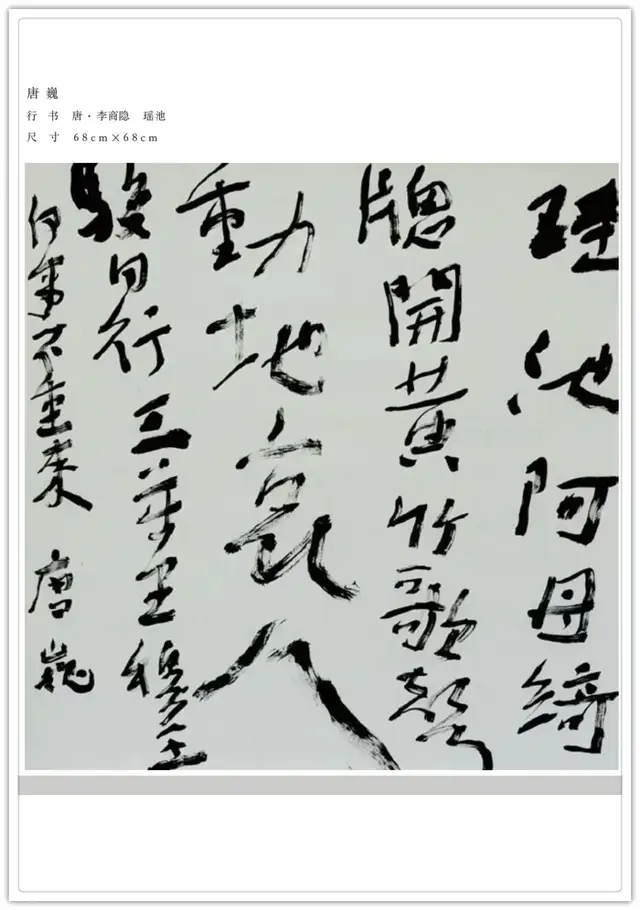 唐 巍
行 书 唐·李商隐 瑶池
尺 寸 68cm×68cm
瑶池阿母綺
牕開黃竹歌聲
動地哀八
駿日行三萬里穆王
何事不重來 唐巍